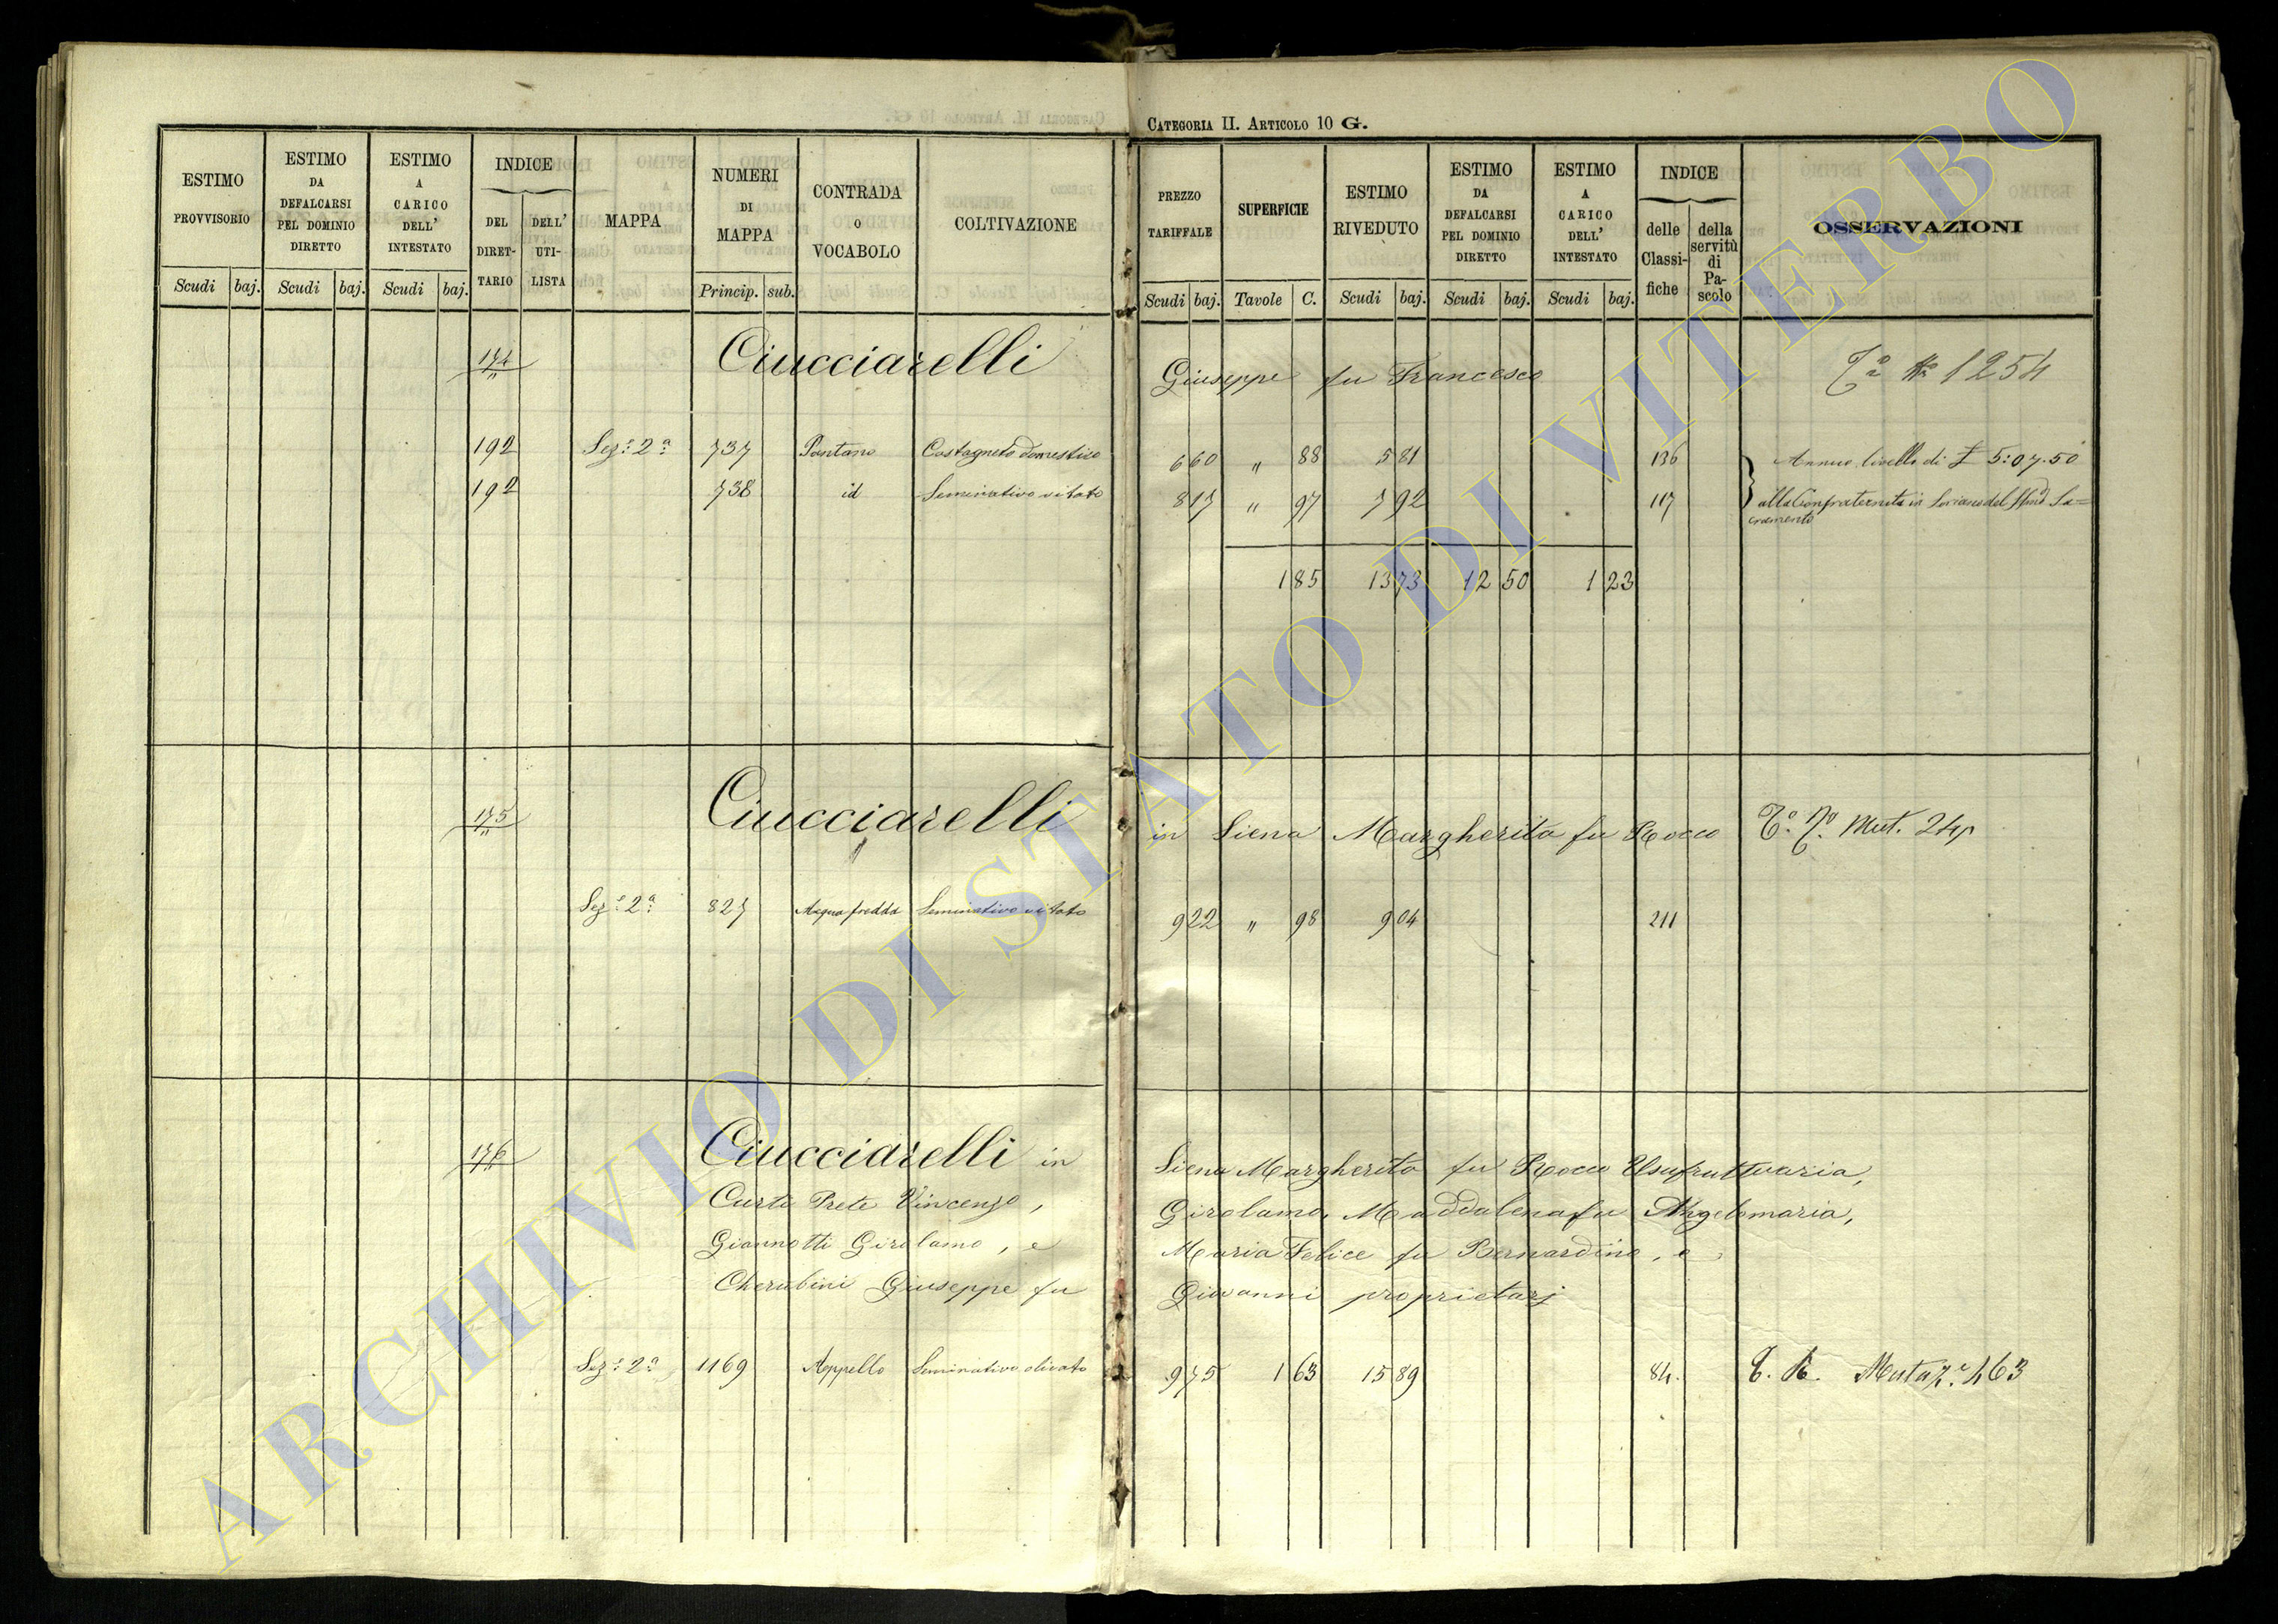 CATEGORIA II. ARTICOLO 10 G.
ESTIMO PROVVISORIO Scudi baj.
ESTIMO DA DEFALCARSI PEL DOMINIO DIRETTO Scudi baj.
ESTIMO A CARICO DELL' INTESTATO Scudi baj.
INDICE DEL DIRET-TARIO DELL' UTI-LISTA
MAPPA
NUMERI DI MAPPA Princip. sub.
CONTRADA o VOCABOLO
COLTIVAZIONE
PREZZO TARIFFALE Scudi baj.
SUPERFICIE Tavole C.
ESTIMO RIVEDUTO Scudi baj.
ESTIMO DA DEFALCARSI PEL DOMINIO DIRETTO Scudi baj.
ESTIMO A CARICO DELL' INTESTATO Scudi baj.
INDICE delle Classi-fiche della servitù di Pa-scolo
OSSERVAZIONI
174 Ciucciarelli Giuseppe fu Francesco 1254
192 Sez.e 2a 737 Pantano Castagneto domestico 6 60 " 88 5 81 136 Annuo livello di £ 5:07.50
192 738 id Seminativo vitato 8 17 " 97 7 92 117 alla Confraternita in Soriano del SSmo Sa=
cramento
1 85 13 73 12 50 1 23
175 Ciucciarelli in Siena Margherita fu Rocco Mut.
Sez.e 2a 827 Acqua fredda Seminativo vitato 9 22 " 98 9 04 211
176 Ciucciarelli in Siena Margherita fu Rocco Usufruttuaria,
Curti Prete Vincenzo, Girolamo, Maddalena fu Angelomaria,
Giannotti Girolamo, e Maria Felice fu Bernardino, e
Cherubini Giuseppe fu Giovanni proprietarj
Sez.e 2a 1169 Appello Seminativo olivato 9 75 1 63 15 89 84. 463
ARCHIVIO DI STATO DI VITERBO